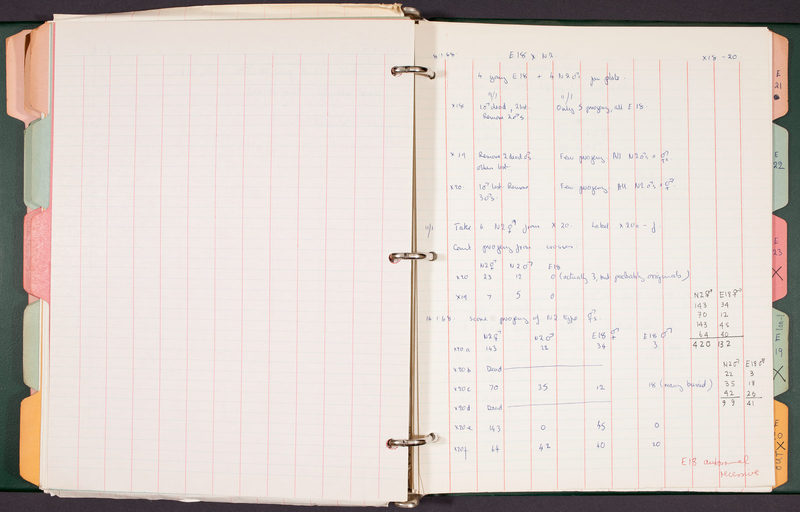 8.1.68. E18 x N2 X18-20
4 young E18 + 4 N2 ♂ per plate.
9/1 11/1
X18 1♂ dead, 2 lost. Only 5 progeny, all E18.
Remove 2♂s
X19 Remove 2 dead ♂s Few progeny All N2 ♂s + ⚥
others lost
X20 1♂ lost Remove Few progeny All N2 ♂s + ⚥.
3♂s.
11/1 Take 6 N2 ⚥ from X20. Label X20a-f.
Count progeny from crosses
N2⚥ N2♂ E18
X20 23 12 0 (actually 3, but probably originals)
X19 7 5 0
N2⚥ E18⚥
143 34
70 12
143 45
64 40
420 132
16.1.68 Score progeny of N2 type ⚥s
N2⚥ N2♂ E18⚥ E18♂
X20a 143 22 34 3
X20b Dead
X20c 70 35 12 18 (many buried)
X20d Dead
X20e 143 0 45 0
X20f 64 42 40 20
N2♂ E18♂
22 3
35 18
42 20
99 41
E18 autosomal
recessive
E
21
E
22
E
23
X
E
19
X
E
20
X
OUT